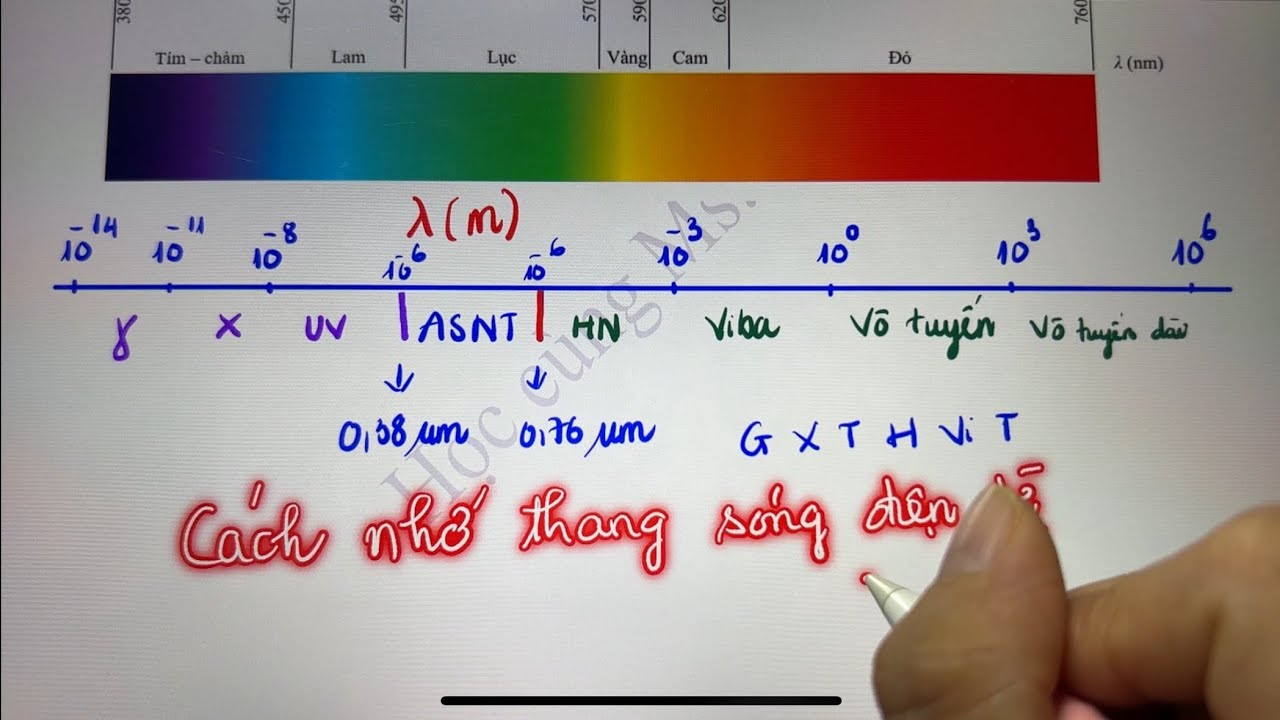 380 450 495 570 590 620 760
Tím – chàm Lam Lục Vàng Cam Đỏ λ (nm)
λ (m)
10⁻¹⁴ 10⁻¹¹ 10⁻⁸ 10⁻⁶ 10⁻⁶ 10⁻³ 10⁰ 10³ 10⁶
γ X UV ASNT HN Viba Vô tuyến Vô tuyến dài
0,38 μm 0,76 μm G X T H Vi T
Cách nhớ thang sóng điện
Học cùng Ms.